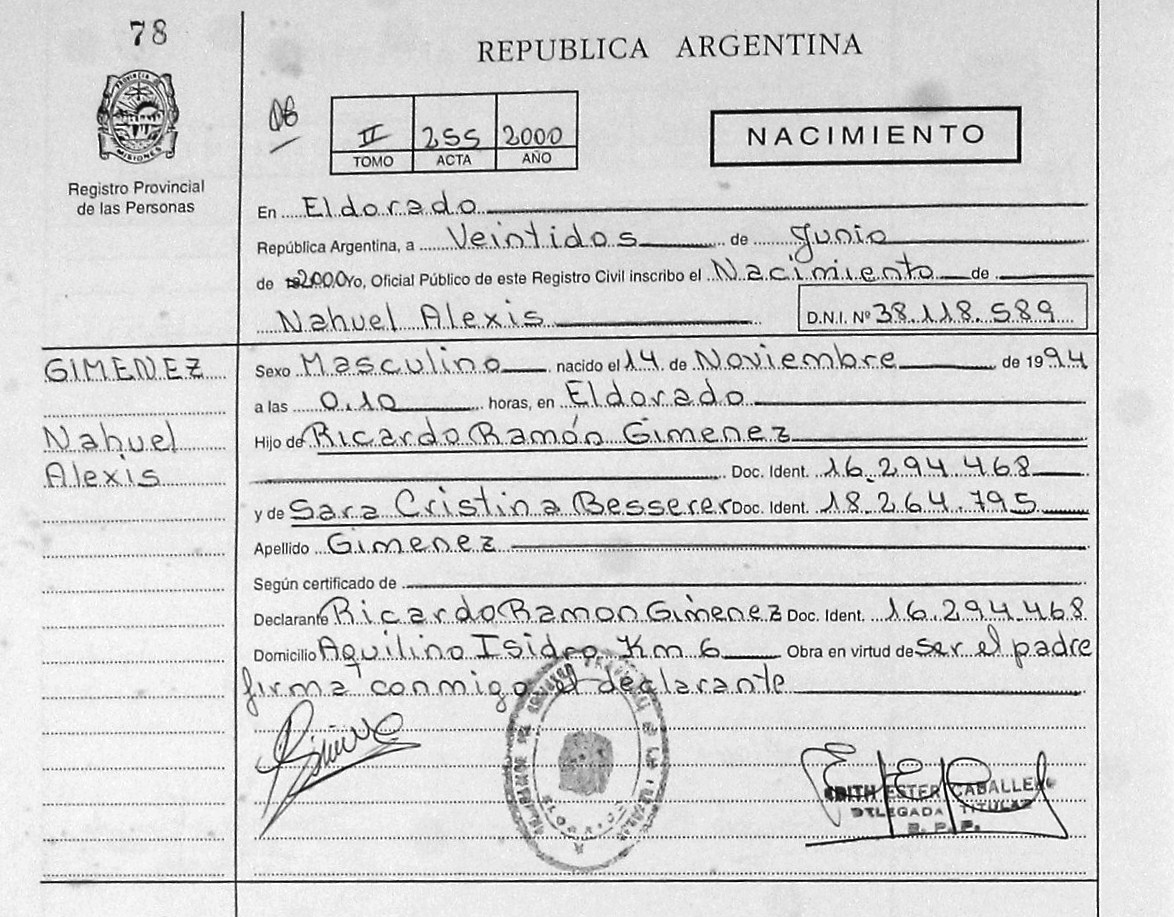 78
REPUBLICA ARGENTINA
PROVINCIA
MISIONES
II 255 2000
TOMO ACTA AÑO
NACIMIENTO
Registro Provincial
de las Personas
En Eldorado
República Argentina, a Veintidos de Junio
de 2000 Yo, Oficial Público de este Registro Civil inscribo el Nacimiento de
Nahuel Alexis D.N.I. Nº 38.118.589
GIMENEZ
Nahuel
Alexis
Sexo Masculino nacido el 14 de Noviembre de 1994
a las 0.10 horas, en Eldorado
Hijo de Ricardo Ramón Gimenez
Doc. Ident. 16.294.468
y de Sara Cristina Besserer Doc. Ident. 18.264.795
Apellido Gimenez
Según certificado de
Declarante Ricardo Ramon Gimenez Doc. Ident. 16.294.468
Domicilio Aquilino Isidro Km 6 Obra en virtud de ser el padre
firma conmigo el declarante
EDITH ESTER CABALLERO
DELEGADA TITULAR
R. P. P.